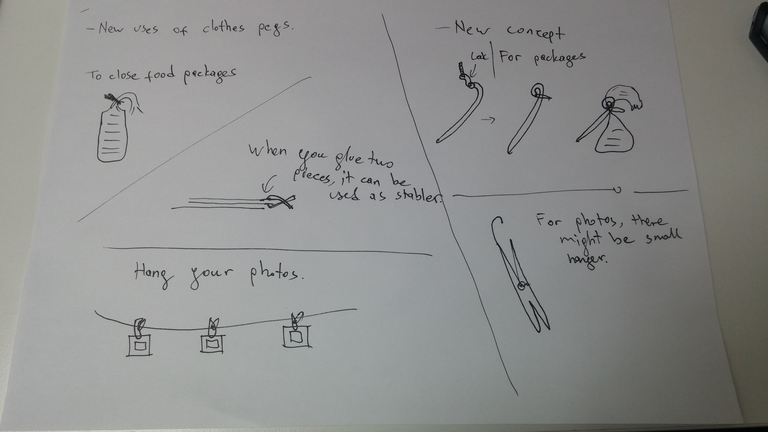 - New uses of clothes pegs.
To close food packages
When you glue two
pieces, it can be
used as stabler.
Hang your photos.
- New concept
Lock
For packages
For photos, there
might be small
hanger.